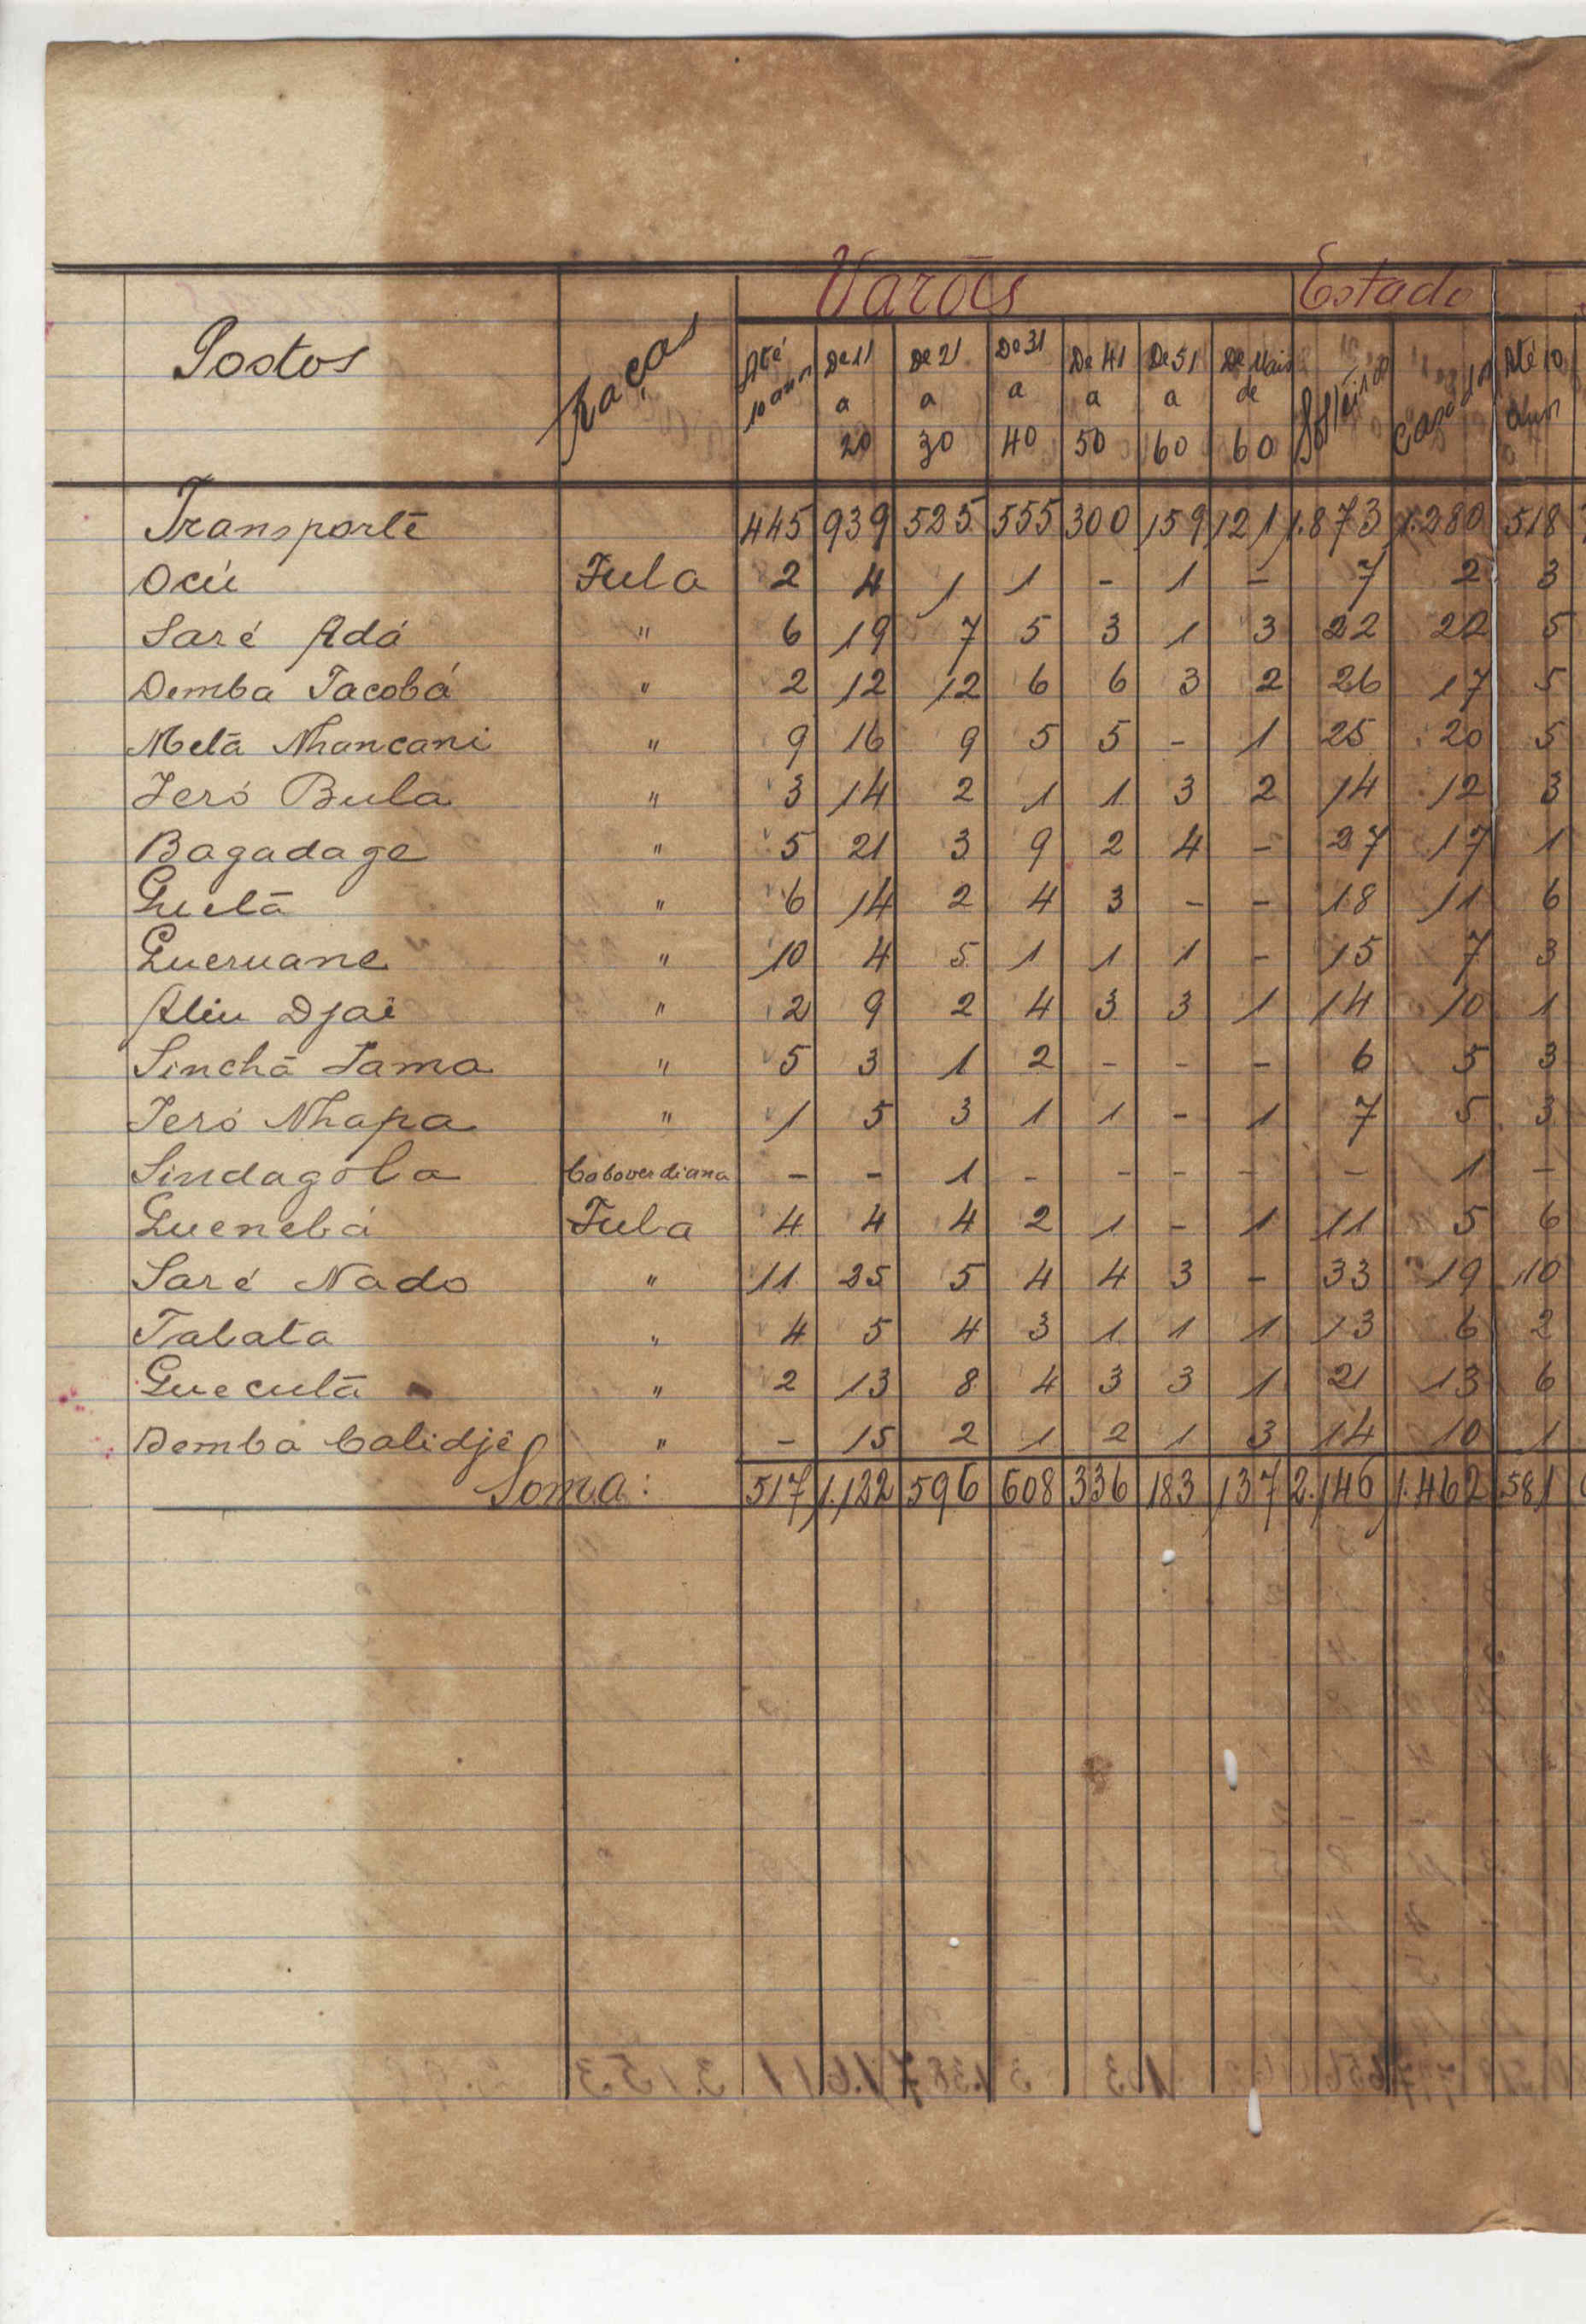 Varões Estado
Postos Raças Até 10 anos De 11 a 20 De 21 a 30 De 31 a 40 De 41 a 50 De 51 a 60 De Mais de 60 Solteiros Casados Até 10 anos
Transporte 445 939 525 555 300 159 121 1.873 1.280 518
Ocú Fula 2 4 1 1 - 1 - 7 2 3
Saré Adá " 6 19 7 5 3 1 3 22 22 5
Demba Jacobá " 2 12 12 6 6 3 2 26 17 5
Metà Nhancani " 9 16 9 5 5 - 1 25 20 5
Jeró Bula " 3 14 2 1 1 3 2 14 12 3
Bagadage " 5 21 3 9 2 4 - 27 17 1
Guetā " 6 14 2 4 3 - - 18 11 6
Gueruane " 10 4 5 1 1 1 - 15 7 3
Aliu Djai " 2 9 2 4 3 3 1 14 10 1
Sinchā Sama " 5 3 1 2 - - - 6 5 3
Jeró Nhapa " 1 5 3 1 1 - 1 7 5 3
Sindagola Caboverdiana - - 1 - - - - - 1 -
Guenebá Fula 4 4 4 2 1 - 1 11 5 6
Saré Nado " 11 25 5 4 4 3 - 33 19 10
Tabata " 4 5 4 3 1 1 1 13 6 2
Guecutā " 2 13 8 4 3 3 1 21 13 6
Demba Calidjê " - 15 2 1 2 1 3 14 10 1
Soma: 517 1.122 596 608 336 183 137 2.146 1.462 581